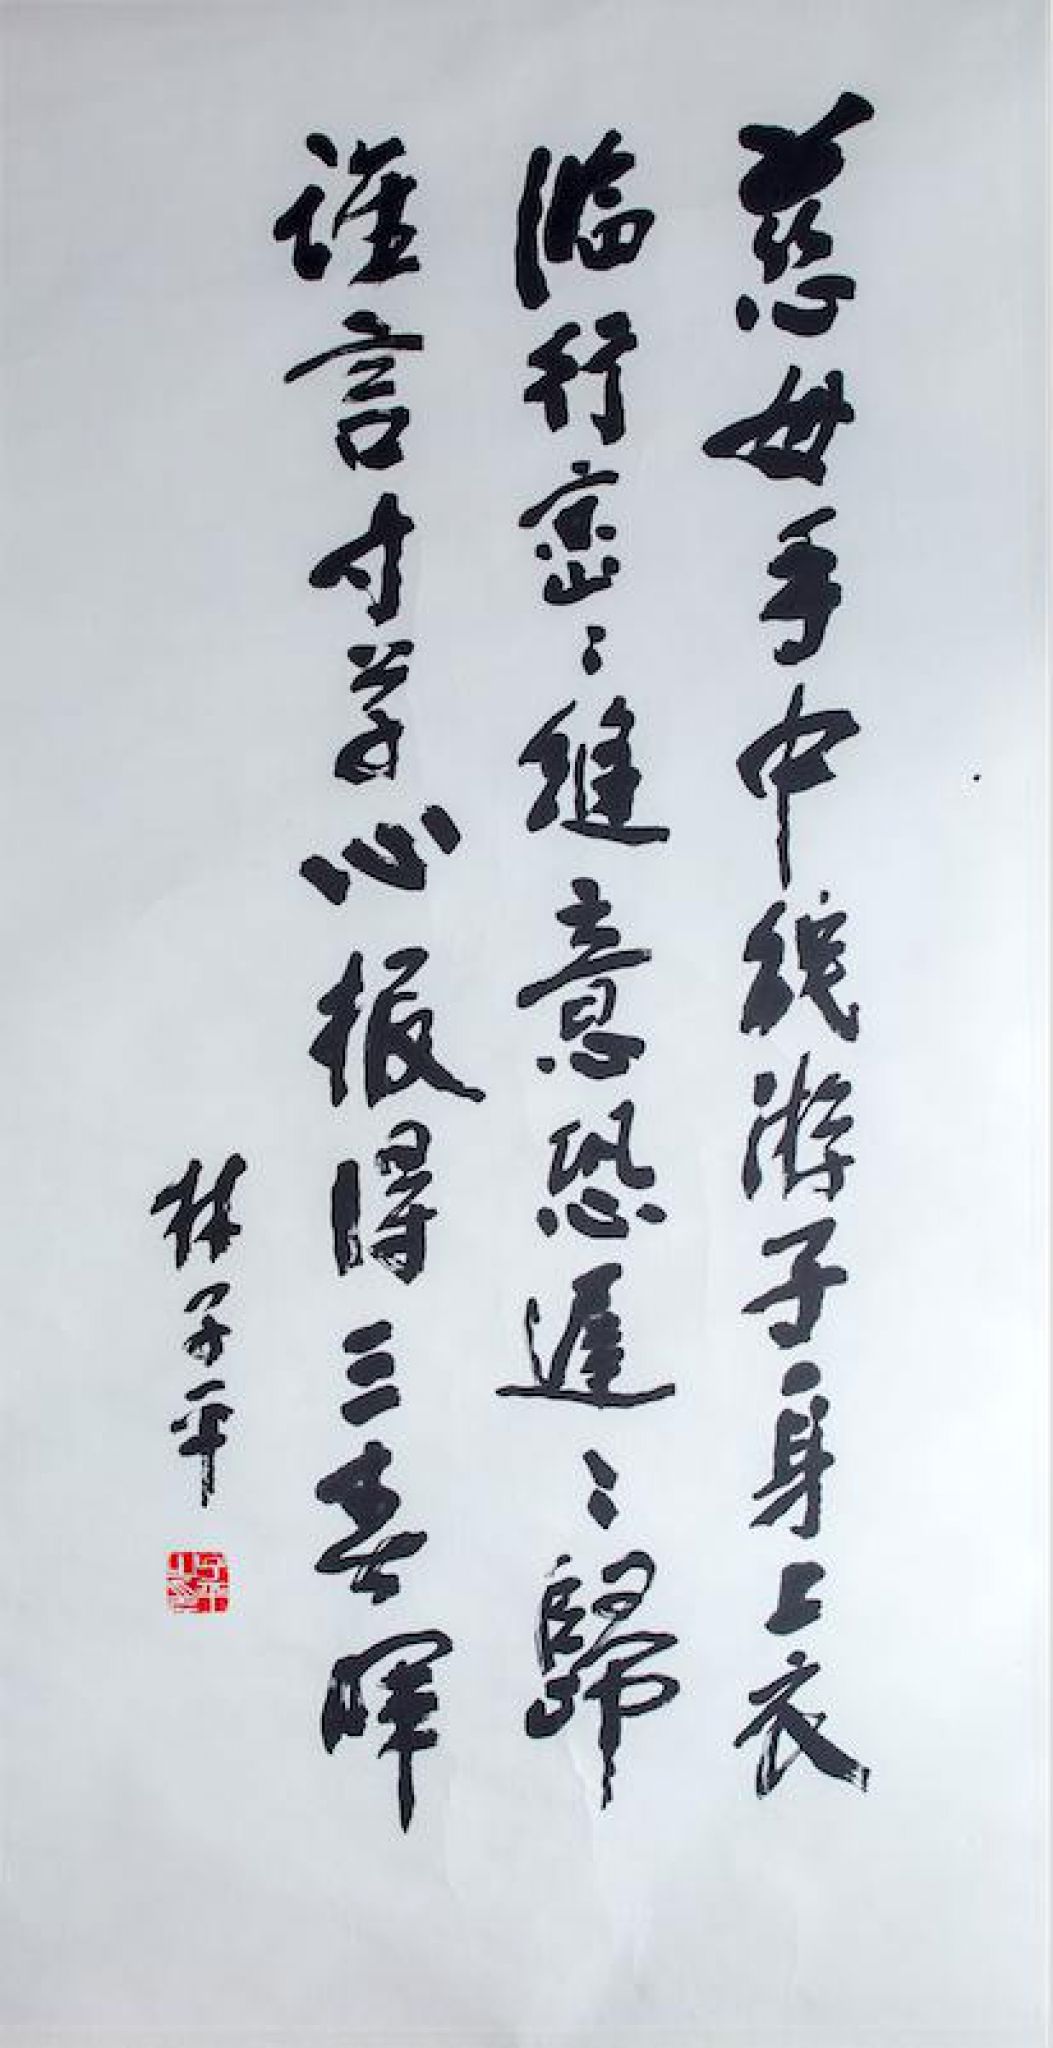 慈母手中线游子身上衣
临行密〻缝意恐遲〻歸
谁言寸草心报得三春晖
林子平